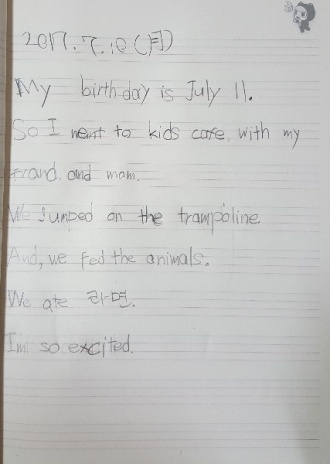 2017. 7. 10 (月)
My birthday is July 11.
So I went to kids cafe with my
friand. and mom.
We Jumped on the trampoline.
And, we fed the animals.
We ate 라면.
I'm so excited.